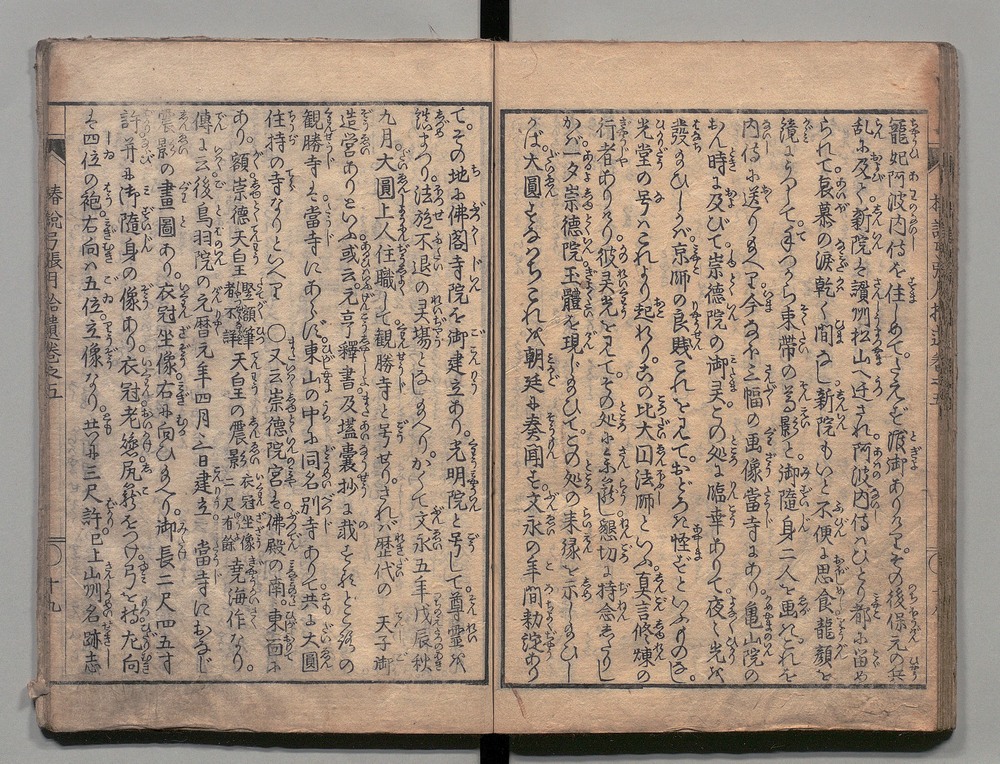 寵妃阿波内侍を住しめて。たえず渡御ありけり。その後保元の兵
乱に及びて。新院を讃州松山へ迁され。阿波内侍はひとり都に留め
られて哀慕の涙乾く間なし。新院もいと不便に思食。龍顔を
鏡にうつして。手つから束帯の尊影と御隨身二人を画き。これを
内侍に送り給へり。今なほ三幅の画像當寺にあり。亀山院の
おん時に及びて。崇德院の御灵この処に臨幸ありて。夜々光を
發給ひしかば。京師の良賤これを見て。おどろき怪ずといふものなし。
光堂の号はこれより起れり。この比大円法師といふ真言修煉の
行者ありけり。彼灵光を見て。その処に参籠し。懇切に持念せられし
かば。一夕崇徳院玉體を現じ給ひて。この処の来縁を示し給ひし
かば。大圓すなはちこれを朝廷に奏聞す。文永の年間勅定あり
て。その地に佛閣寺院を御建立あり。光明院と号して尊霊を
鎮まつり。法施不退の灵場となし給へり。かくて文永五年戊辰秋
九月。大圓上人住職して。観勝寺と号せり。されば歴代の 天子御
造営ありといふ。或云。元亨釋書及壒囊抄に載するところの
観勝寺は當寺にあらず。東山の中に同名別寺ありて。共に大圓
住持の寺なりといへり ○又云崇德院宮は佛殿の南東面に
あり。額崇德天白王竪額筆者不詳 天皇の震影衣冠坐像二尺有餘 堯海作なり。
傳に云後鳥羽院の元暦元年四月三日建立 當寺におなじ
震影の畫圖あり。衣冠坐像。右に向ひ給へり。御長二尺四五寸
許 并に御隨身の像あり。衣冠老懸尻籠をつけ。弓を持。左向
は四位の袍。右向は五位の像なり。共に三尺許。已上山州名跡志
椿説弓張月拾遺卷之五
十九